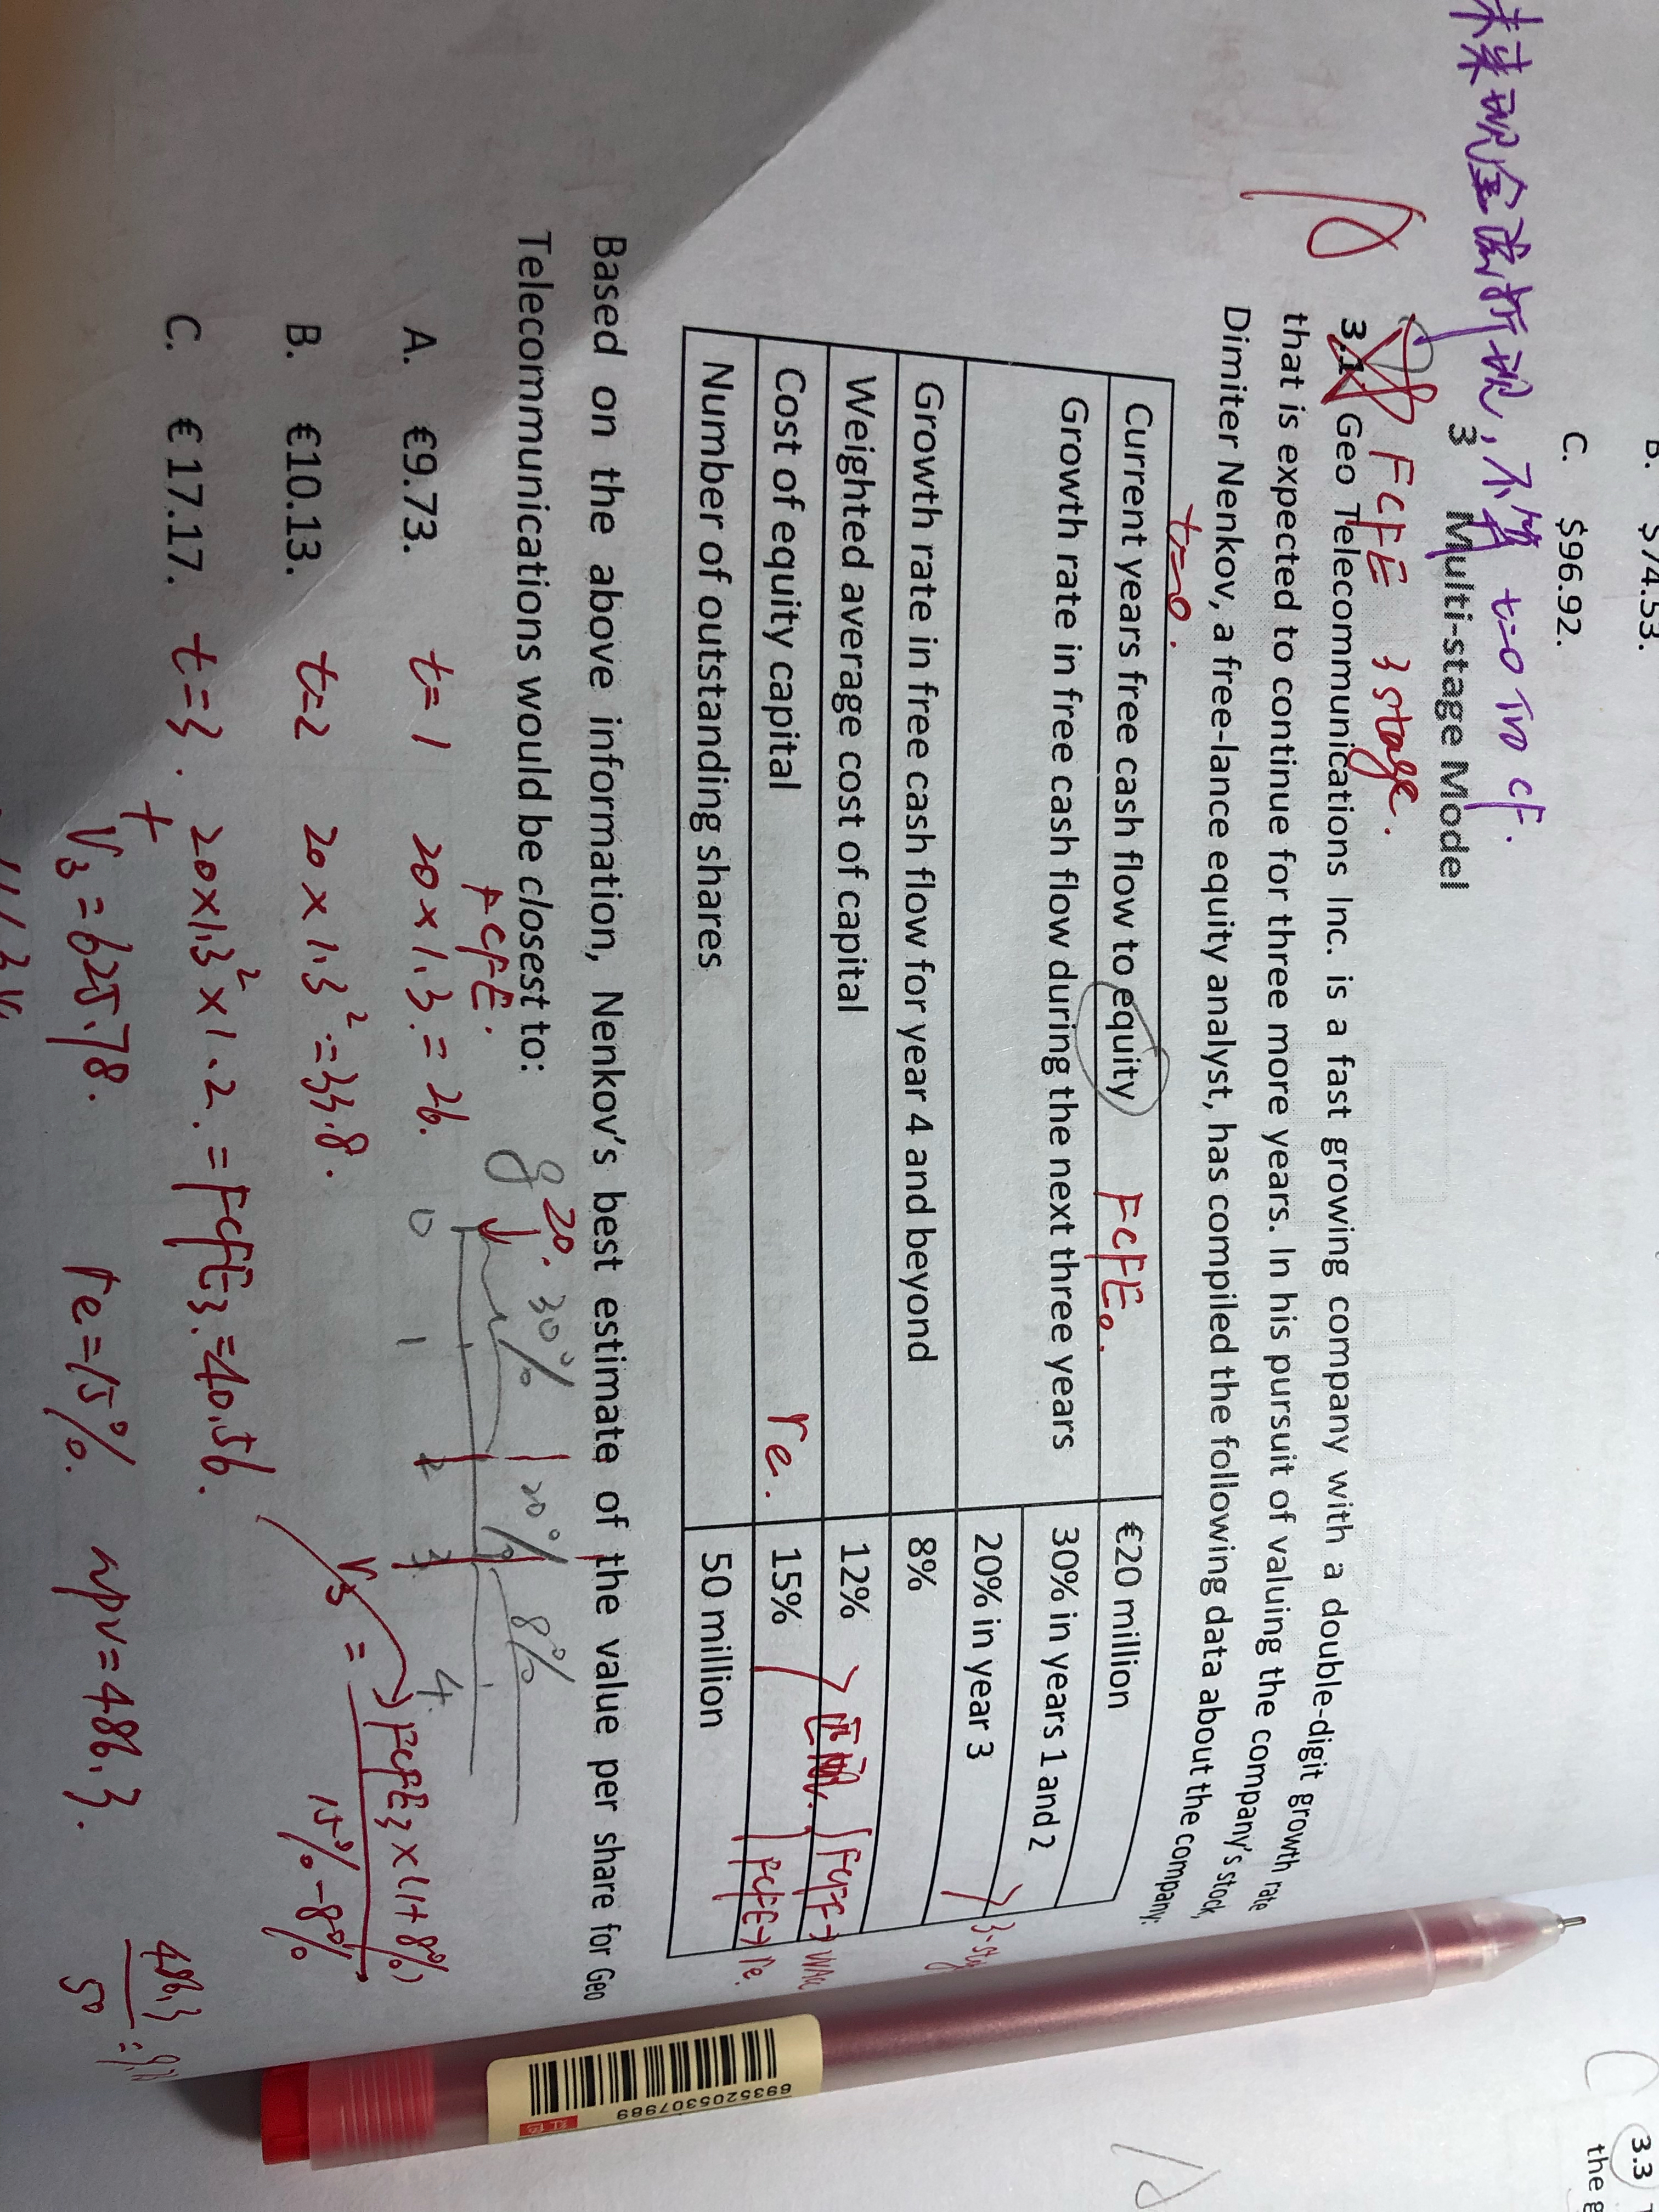 B. $74.53.
C. $96.92.
未来现金流折现,不算 t=0 TM CF.
3 Multi-stage Model
FCFE 3 stage.
3.1 Geo Telecommunications Inc. is a fast growing company with a double-digit growth rate
that is expected to continue for three more years. In his pursuit of valuing the company's stock,
Dimiter Nenkov, a free-lance equity analyst, has compiled the following data about the company:
t=0.
Current years free cash flow to equity FCFE0. €20 million
Growth rate in free cash flow during the next three years 30% in years 1 and 2
20% in year 3
Growth rate in free cash flow for year 4 and beyond 8%
Weighted average cost of capital 12%
Cost of equity capital re. 15%
Number of outstanding shares 50 million
FCFF→WACC
FCFE→re.
Based on the above information, Nenkov's best estimate of the value per share for Geo
Telecommunications would be closest to:
g 20. 30% 20% 8%
FCFE.
0 1 2 3 4
A. €9.73. t=1 20×1.3=26.
B. €10.13. t=2 20×1.3²=33.8.
V3 = FCFE3×(1+8%)
15%-8%
C. €17.17. t=3. 20×1.3²×1.2.=FCFE3.=40.56.
+
V3=625.78. re=15%. npv=486.3.
486.3
50
3.3
6935205307989
红色